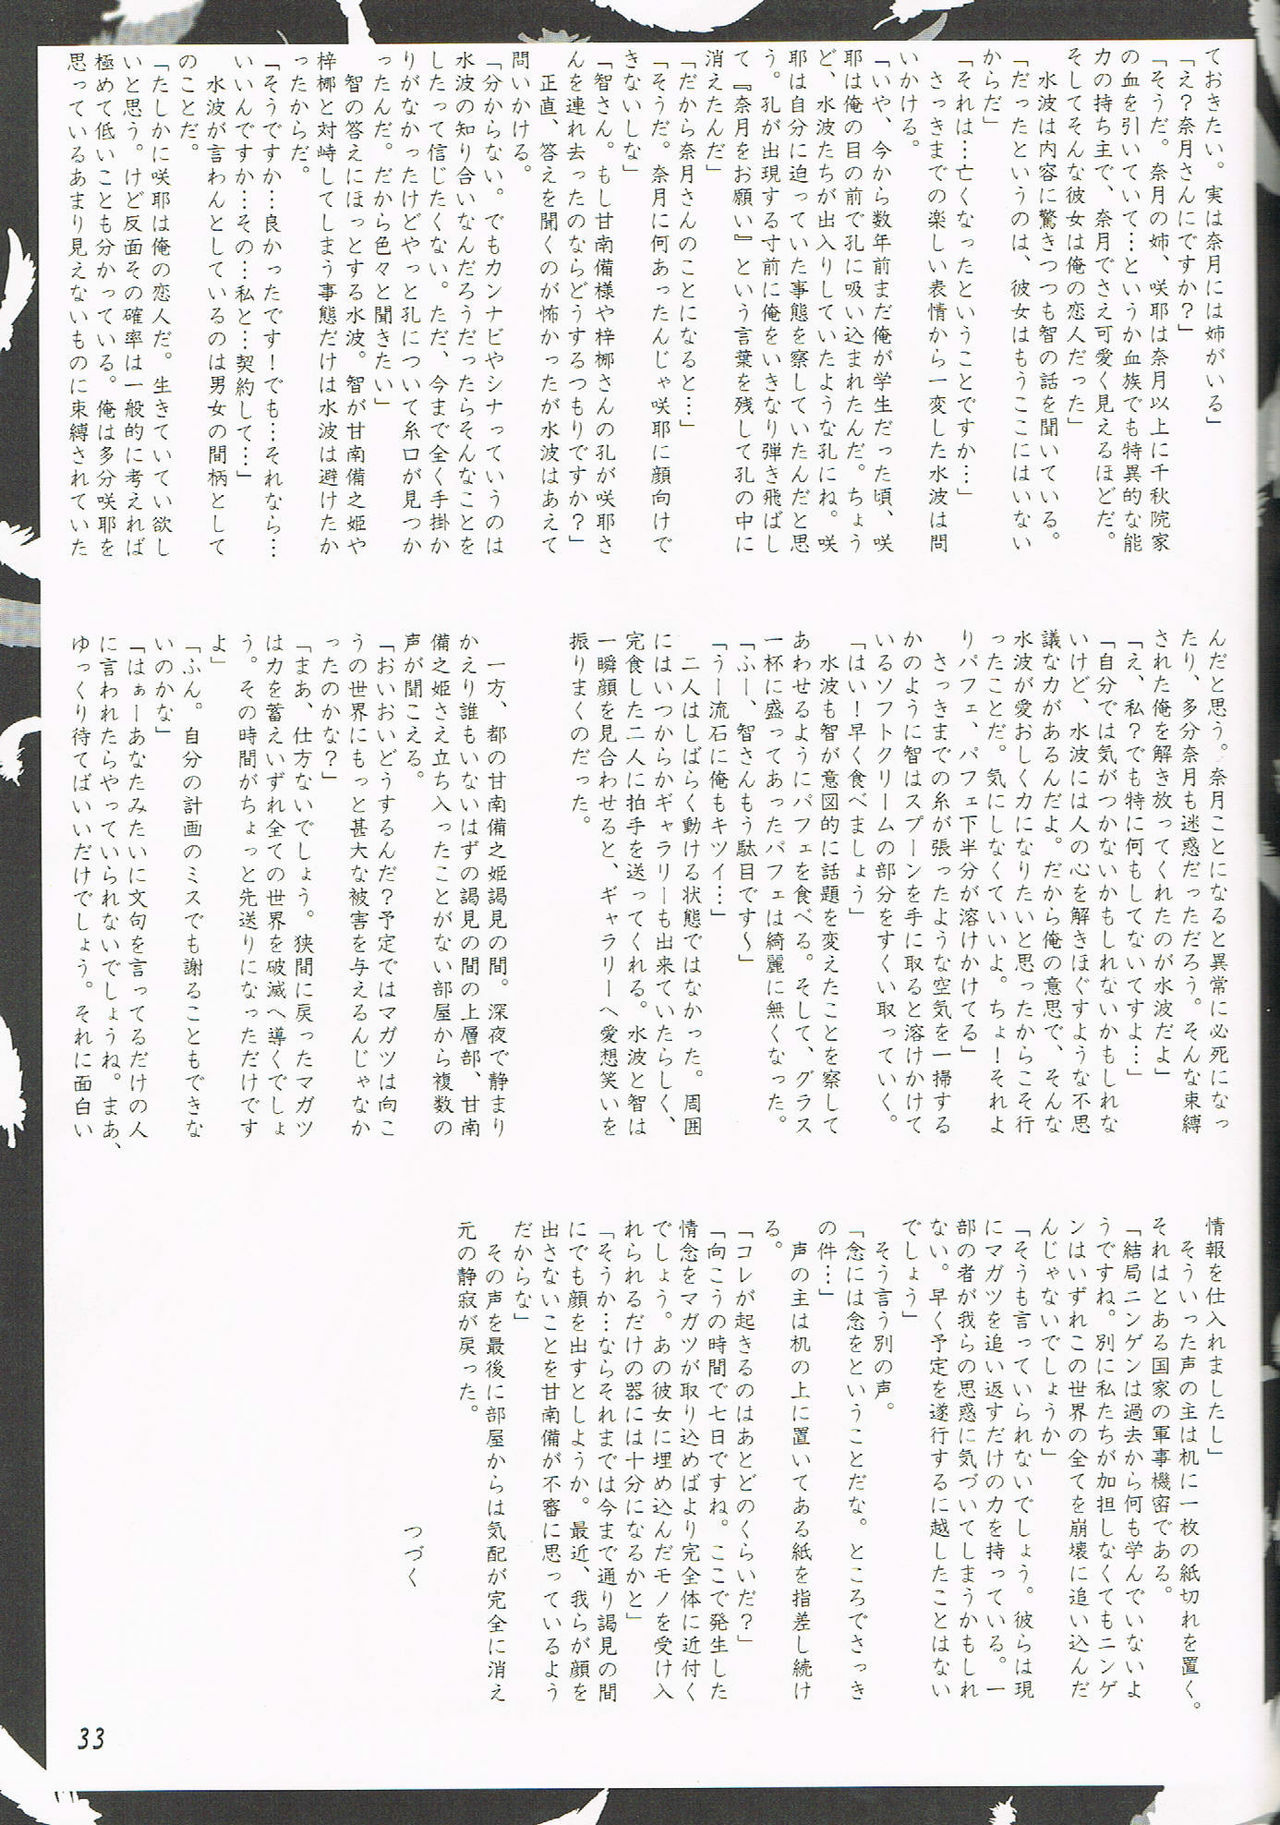 ておきたい。実は奈月には姉がいる」
「え？奈月さんにですか？」
「そうだ。奈月の姉、咲耶は奈月以上に千秋院家
の血を引いていて…というか血族でも特異的な能
力の持ち主で、奈月でさえ可愛く見えるほどだ。
そしてそんな彼女は俺の恋人だった」
　水波は内容に驚きつつも智の話を聞いている。
「だったというのは、彼女はもうここにはいない
からだ」
「それは…亡くなったということですか…」
　さっきまでの楽しい表情から一変した水波は問
いかける。
「いや、今から数年前まだ俺が学生だった頃、咲
耶は俺の目の前で孔に吸い込まれたんだ。ちょう
ど、水波たちが出入りしていたような孔にね。咲
耶は自分に迫っていた事態を察していたんだと思
う。孔が出現する寸前に俺をいきなり弾き飛ばし
て『奈月をお願い』という言葉を残して孔の中に
消えたんだ」
「だから奈月さんのことになると…」
「そうだ。奈月に何あったんじゃ咲耶に顔向けで
きないしな」
「智さん。もし甘南備様や梓梛さんの孔が咲耶さ
んを連れ去ったのならどうするつもりですか？」
　正直、答えを聞くのが怖かったが水波はあえて
問いかける。
「分からない。でもカンナビやシナっていうのは
水波の知り合いなんだろうだったらそんなことを
したって信じたくない。ただ、今まで全く手掛か
りがなかったけどやっと孔について糸口が見つか
ったんだ。だから色々と聞きたい」
　智の答えにほっとする水波。智が甘南備之姫や
梓梛と対峙してしまう事態だけは水波は避けたか
ったからだ。
「そうですか…良かったです！でも…それなら…
いいんですか…その…私と…契約して…」
　水波が言わんとしているのは男女の間柄として
のことだ。
「たしかに咲耶は俺の恋人だ。生きていてい欲し
いと思う。けど反面その確率は一般的に考えれば
極めて低いことも分かっている。俺は多分咲耶を
思っているあまり見えないものに束縛されていた
んだと思う。奈月ことになると異常に必死になっ
たり、多分奈月も迷惑だっただろう。そんな束縛
された俺を解き放ってくれたのが水波だよ」
「え、私？でも特に何もしてないてすよ…」
「自分では気がつかないかもしれないかもしれな
いけど、水波には人の心を解きほぐすような不思
議な力があるんだよ。だから俺の意思で、そんな
水波が愛おしく力になりたいと思ったからこそ行
ったことだ。気にしなくていいよ。ちょ！それよ
りパフェ、パフェ下半分が溶けかけてる」
　さっきまでの糸が張ったような空気を一掃する
かのように智はスプーンを手に取ると溶けかけて
いるソフトクリームの部分をすくい取っていく。
「はい！早く食べましょう」
　水波も智が意図的に話題を変えたことを察して
あわせるようにパフェを食べる。そして、グラス
一杯に盛ってあったパフェは綺麗に無くなった。
「ふー、智さんもう駄目です～」
「うー流石に俺もキツイ…」
　二人はしばらく動ける状態ではなかった。周囲
にはいつからかギャラリーも出来ていたらしく、
完食した二人に拍手を送ってくれる。水波と智は
一瞬顔を見合わせると、ギャラリーへ愛想笑いを
振りまくのだった。
　一方、都の甘南備之姫謁見の間。深夜で静まり
かえり誰もいないはずの謁見の間の上層部、甘南
備之姫さえ立ち入ったことがない部屋から複数の
声が聞こえる。
「おいおいどうするんだ？予定ではマガツは向こ
うの世界にもっと甚大な被害を与えるんじゃなか
ったのかな？」
「まあ、仕方ないでしょう。狭間に戻ったマガツ
は力を蓄えいずれ全ての世界を破滅へ導くでしょ
う。その時間がちょっと先送りになっただけです
よ」
「ふん。自分の計画のミスでも謝ることもできな
いのかな」
「はぁーあなたみたいに文句を言ってるだけの人
に言われたらやっていられないでしょうね。まあ、
ゆっくり待てばいいだけでしょう。それに面白い
情報を仕入れましたし」
　そういった声の主は机に一枚の紙切れを置く。
それはとある国家の軍事機密である。
「結局ニンゲンは過去から何も学んでいないよ
うですね。別に私たちが加担しなくてもニンゲ
ンはいずれこの世界の全てを崩壊に追い込んだ
んじゃないでしょうか」
「そうも言っていられないでしょう。彼らは現
にマガツを追い返すだけの力を持っている。一
部の者が我らの思惑に気づいてしまうかもしれ
ない。早く予定を遂行するに越したことはない
でしょう」
　そう言う別の声。
「念には念をということだな。ところでさっき
の件…」
　声の主は机の上に置いてある紙を指差し続け
る。
「コレが起きるのはあとどのくらいだ？」
「向こうの時間で七日ですね。ここで発生した
情念をマガツが取り込めばより完全体に近付く
でしょう。あの彼女に埋め込んだモノを受け入
れられるだけの器には十分になるかと」
「そうか…ならそれまでは今まで通り謁見の間
にでも顔を出すとしようか。最近、我らが顔を
出さないことを甘南備が不審に思っているよう
だからな」
　その声を最後に部屋からは気配が完全に消え
元の静寂が戻った。
つづく
33